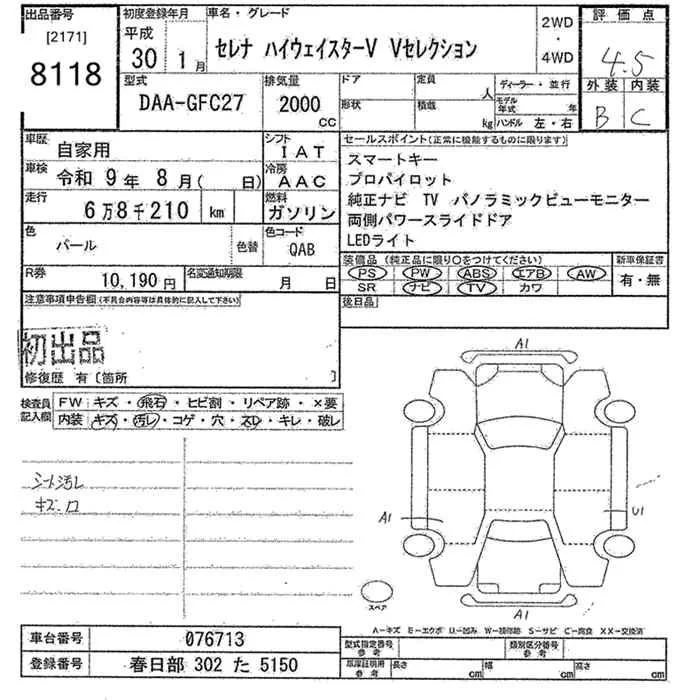 出品番号 初度登録年月 車名・グレード 2WD・4WD 評価点
[2171] 平成
8118 30年 1月 セレナ ハイウェイスターV Vセレクション 4.5
型式 排気量 ドア 定員 人 ディーラー・並行 外装 内装
DAA-GFC27 2000 CC 形状 積載 kg モデル年式 年 B C
ハンドル 左・右
車歴 自家用 シフト IAT セールスポイント(正常に機能するものに限ります)
車検 令和 9年 8月( 日) 冷房 AAC スマートキー
プロパイロット
走行 6万8千210 km 燃料 ガソリン 純正ナビ TV パノラミックビューモニター
両側パワースライドドア
色 パール 色替 色コード QAB LEDライト
装備品(純正品に限り○をつけてください) 新車保証書
R券 10,190円 名変通知期限 月 日 PS PW ABS エアB AW 有・無
SR ナビ TV カワ
注意事項申告欄(不具合内容等は具体的に記入して下さい) 後日品
初出品
修復歴 有〔箇所 〕
検査員記入欄 FW キズ・飛石・ヒビ割・リペア跡・×要
内装 キズ・汚レ・コゲ・穴・スレ・キレ・破レ
シート汚レ
キズ・ロ
A1
A1
U1
A1
スペア
A=キズ E=エクボ U=凹み W=補修跡 S=サビ C=腐食 XX=交換済
車台番号 076713 型式指定番号参考 類別区分番号参考
登録番号 春日部 302 た 5150 車庫証明用参考 長さ cm 幅 cm 高さ cm